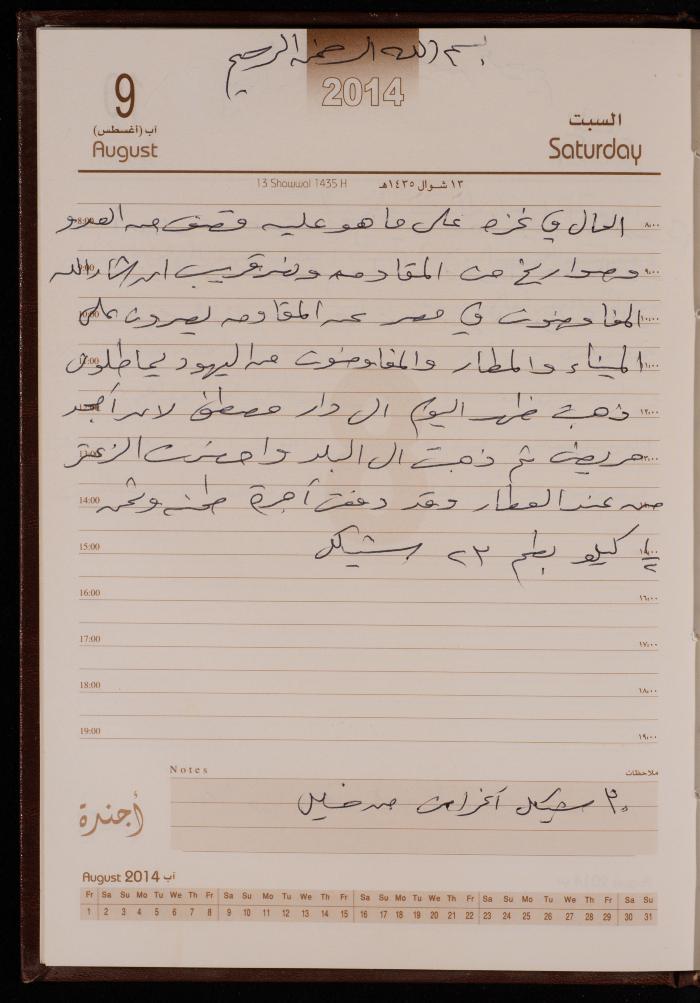 بسم الله الرحمن الرحيم
2014
9
آب (أغسطس)
August
السبت
Saturday
13 Shawwal 1435 H
١٣ شوال ١٤٣٥هـ
8:00 الحال في غزه على ما هو عليه وقصف من العدو ٨،٠٠
9:00 وصواريخ من المقاومه ونصر قريب ان شاء الله ٩،٠٠
10:00 المفاوضون في مصر عن المقاومه يصرون على ١٠،٠٠
11:00 الميناء والمطار والمفاوضون من اليهود يماطلون ١١،٠٠
ذهبت ظهر اليوم الى دار مصطفى لانه أحمد ١٢،٠٠
مريض ثم ذهبت الى البلد واحضرت الزعتر
14:00 من عند العطار وقد دفعت أجرة طحنه وثمن
15:00 ١/٢ كيلو بطم ٢٣ شيكل
16:00 ١٦،٠٠
17:00 ١٧،٠٠
18:00 ١٨،٠٠
19:00 ١٩،٠٠
Notes ملاحظات
٣٠ شيكل من خليل
أجندة
August 2014 آب
Fr Sa Su Mo Tu We Th Fr Sa Su Mo Tu We Th Fr Sa Su Mo Tu We Th Fr Sa Su Mo Tu We Th Fr Sa Su
1 2 3 4 5 6 7 8 9 10 11 12 13 14 15 16 17 18 19 20 21 22 23 24 25 26 27 28 29 30 31